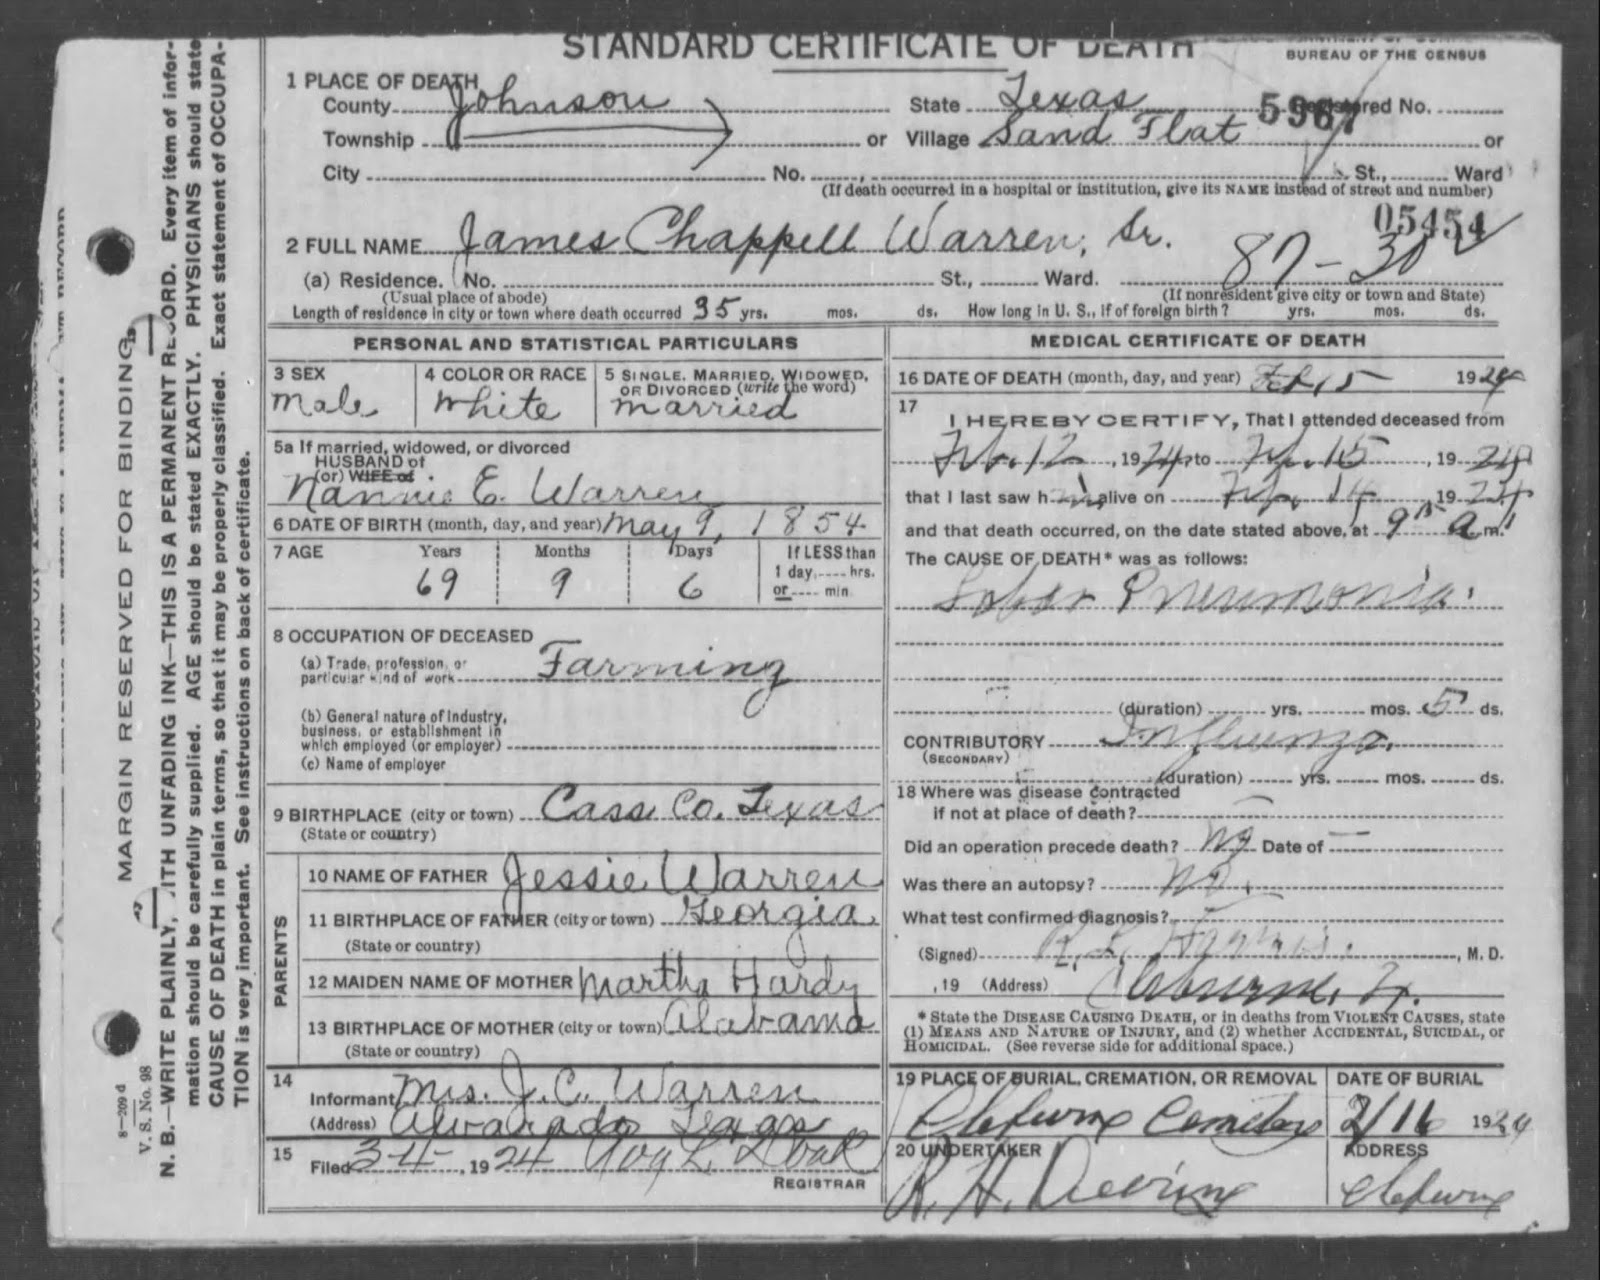 STANDARD CERTIFICATE OF DEATH
BUREAU OF THE CENSUS
1 PLACE OF DEATH
County Johnson State Texas 5967 Registered No.
Township or Village Sand Flat or
City No. St., Ward
(If death occurred in a hospital or institution, give its NAME instead of street and number)
05454
2 FULL NAME James Chappell Warren, Sr. 87-30
(a) Residence. No. St., Ward.
(Usual place of abode) (If nonresident give city or town and State)
Length of residence in city or town where death occurred 35 yrs. mos. ds. How long in U. S., if of foreign birth? yrs. mos. ds.
PERSONAL AND STATISTICAL PARTICULARS
3 SEX 4 COLOR OR RACE 5 SINGLE, MARRIED, WIDOWED, OR DIVORCED (write the word)
Male White Married
5a If married, widowed, or divorced
HUSBAND of
(or) WIFE of
Nannie E. Warren
6 DATE OF BIRTH (month, day, and year) May 9, 1854
7 AGE Years Months Days If LESS than
1 day, hrs.
69 9 6 or min.
8 OCCUPATION OF DECEASED
(a) Trade, profession, or
particular kind of work Farming
(b) General nature of Industry,
business, or establishment in
which employed (or employer)
(c) Name of employer
9 BIRTHPLACE (city or town) Cass Co. Texas
(State or country)
PARENTS
10 NAME OF FATHER Jessie Warren
11 BIRTHPLACE OF FATHER (city or town) Georgia.
(State or country)
12 MAIDEN NAME OF MOTHER Martha Hardy
13 BIRTHPLACE OF MOTHER (city or town) Alabama
(State or country)
14
Informant Mrs. J. C. Warren
(Address) Alvarado Texas
15
Filed 3-4-, 1924 Roy L. Doak
REGISTRAR
MEDICAL CERTIFICATE OF DEATH
16 DATE OF DEATH (month, day, and year) Feb, 15 1924
17
I HEREBY CERTIFY, That I attended deceased from
Feb. 12, 1924, to Feb. 15, 1924
that I last saw him alive on Feb. 14 1924
and that death occurred, on the date stated above, at 9 a m.
The CAUSE OF DEATH* was as follows:
Lobar Pneumonia.
(duration) yrs. mos. 5 ds.
CONTRIBUTORY Influenza.
(SECONDARY)
(duration) yrs. mos. ds.
18 Where was disease contracted
if not at place of death?
Did an operation precede death? No Date of
Was there an autopsy? No.
What test confirmed diagnosis?
(Signed) R. L. , M. D.
, 19 (Address) Cleburne, Tx.
* State the DISEASE CAUSING DEATH, or in deaths from VIOLENT CAUSES, state
(1) MEANS AND NATURE OF INJURY, and (2) whether ACCIDENTAL, SUICIDAL, or
HOMICIDAL. (See reverse side for additional space.)
19 PLACE OF BURIAL, CREMATION, OR REMOVAL DATE OF BURIAL
Cleburne Cemetery 2/16 1924
20 UNDERTAKER ADDRESS
R. H. Deering Cleburne
MARGIN RESERVED FOR BINDING
8-209 d
V. S. No. 98
N. B.—WRITE PLAINLY, WITH UNFADING INK—THIS IS A PERMANENT RECORD. Every item of infor-
mation should be carefully supplied. AGE should be stated EXACTLY. PHYSICIANS should state
CAUSE OF DEATH in plain terms, so that it may be properly classified. Exact statement of OCCUPA-
TION is very important. See instructions on back of certificate.